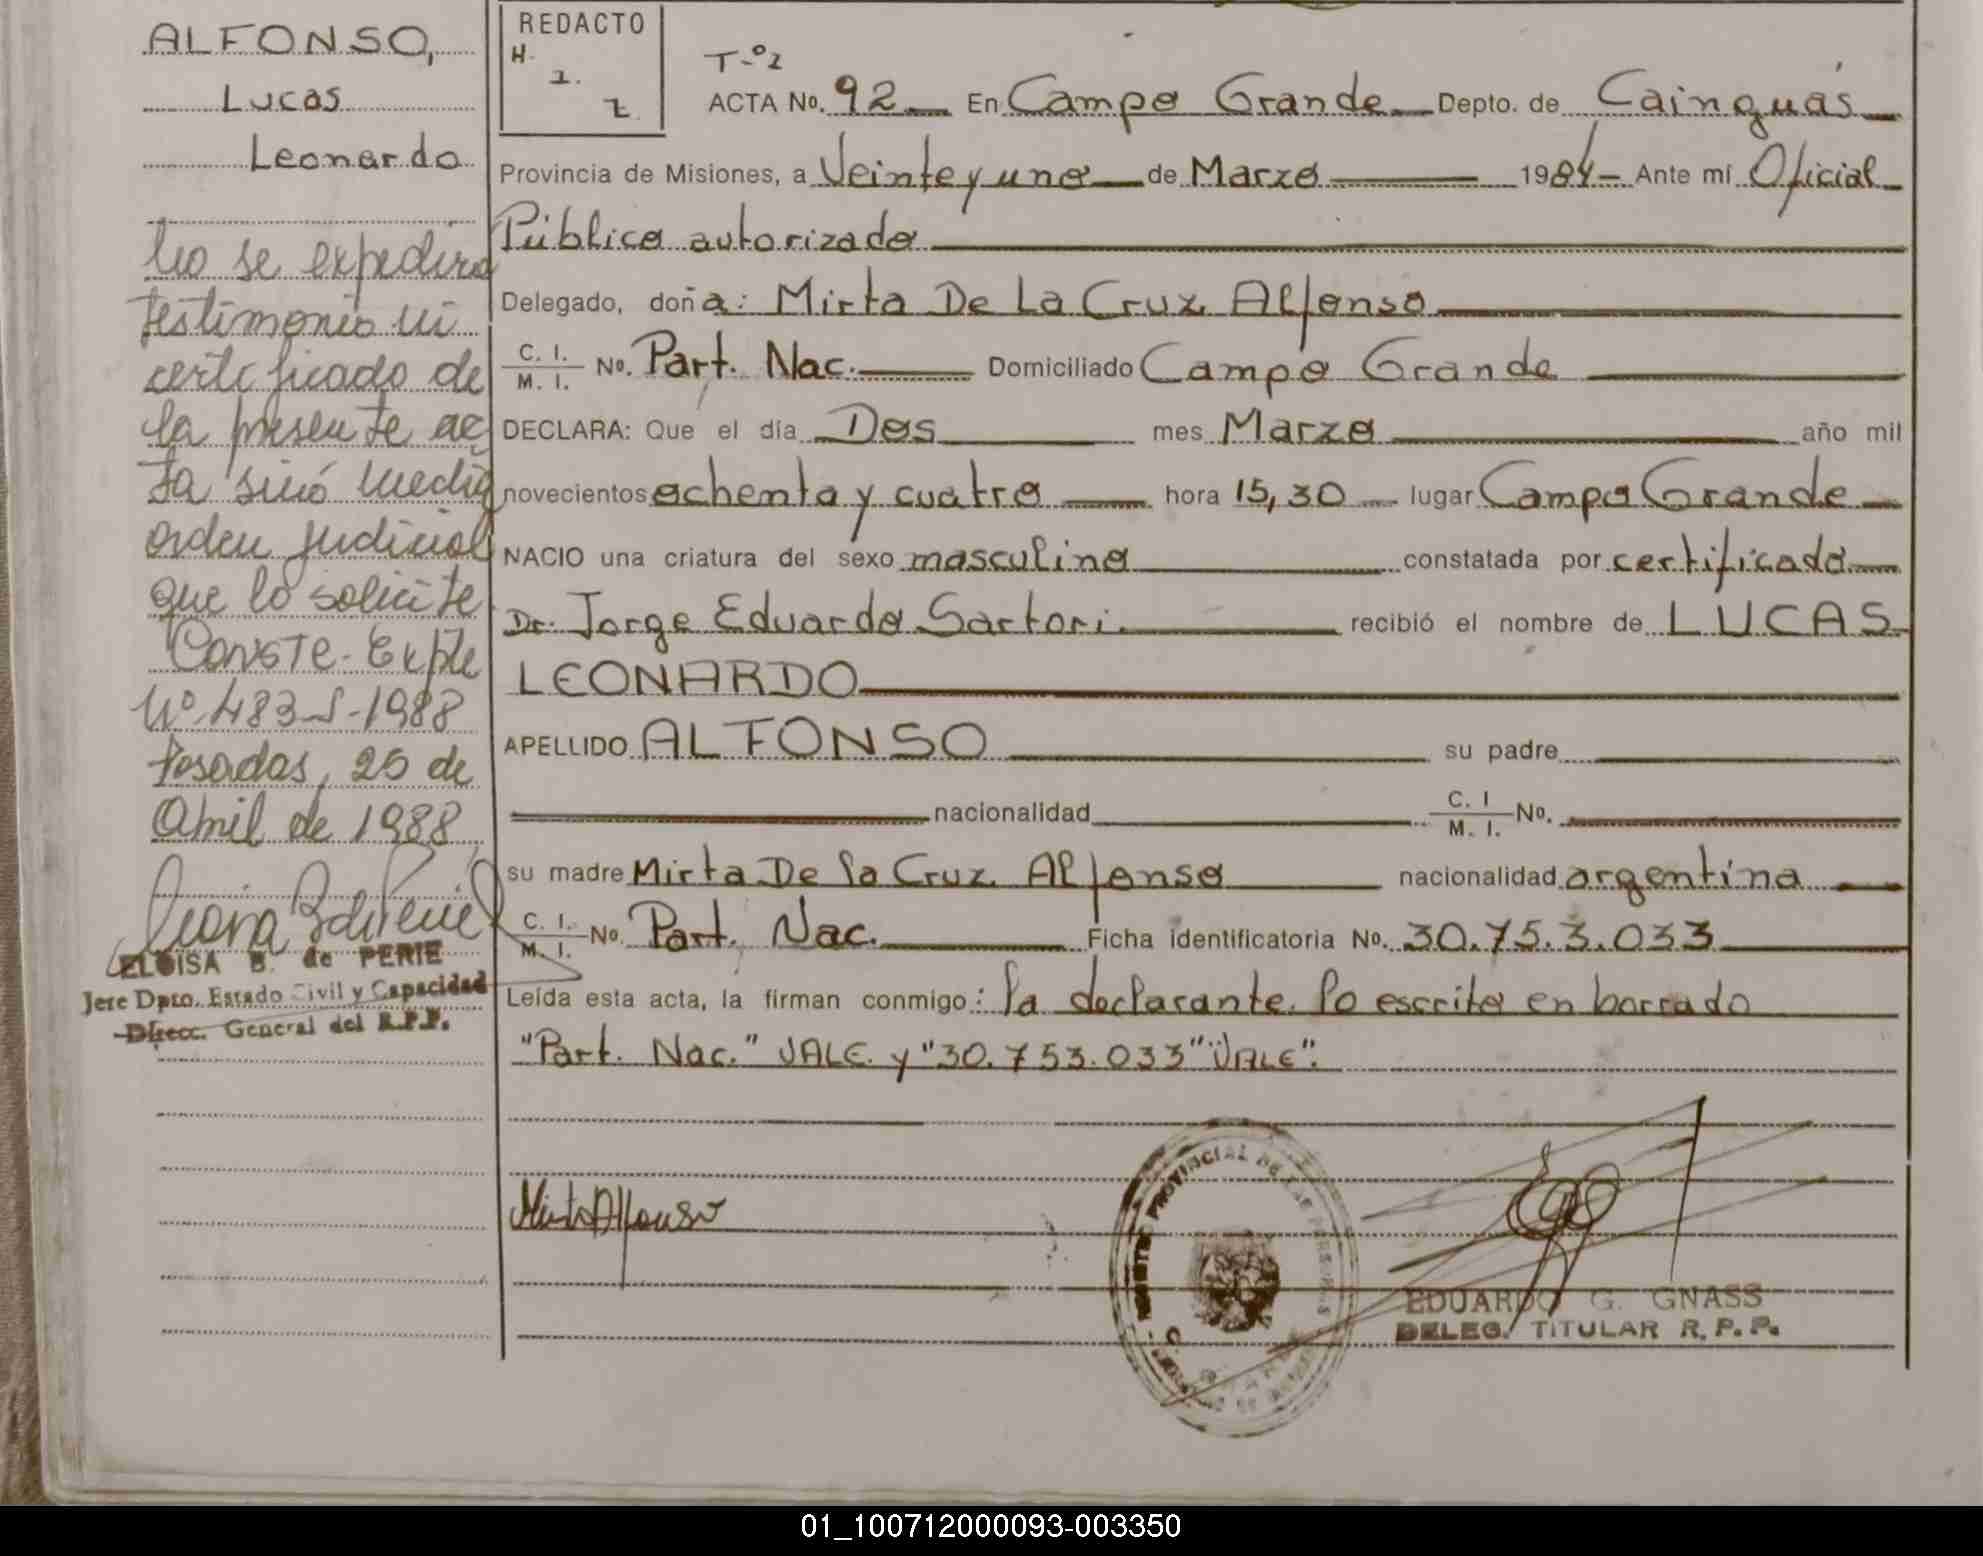 ALFONSO,
Lucas
Leonardo
No se expedira
testimonio ni
certificado de
la presente ac
ta sinó media
orden judicial
que lo solicite
Conste. Expte
Nº 483-S-1988
Posadas, 25 de
Abril de 1988
ELOISA B. de PERIE
Jefe Dpto. Estado Civil y Capacidad
Direcc. General del R.P.P.
REDACTO
H.
1.
2
T-º1
ACTA No. 92 En Campo Grande Depto. de Cainguás
Provincia de Misiones, a Veinte y uno de Marzo 1984 Ante mí Oficial
Público autorizado
Delegado, doña: Mirta De La Cruz Alfonso
C. I.
M. I. No. Part. Nac. Domiciliado Campo Grande
DECLARA: Que el día Dos mes Marzo año mil
novecientos ochenta y cuatro hora 15,30 lugar Campo Grande
NACIO una criatura del sexo masculino constatada por certificado
Dr. Jorge Eduardo Sartori. recibió el nombre de LUCAS
LEONARDO
APELLIDO ALFONSO su padre
nacionalidad C. I M. I. No.
su madre Mirta De la Cruz Alfonso nacionalidad argentina
C. I. M. I. No. Part. Nac. Ficha identificatoria No. 30.753.033
Leída esta acta, la firman conmigo: la declarante. lo escrito en borrado
"Part. Nac." VALE y "30.753.033" "VALE".
Mirta Alfonso
PROVINCIAL DE LAS PERSONAS
EDUARDO G. GNASS
DELEG. TITULAR R.P.P.
01_100712000093-003350